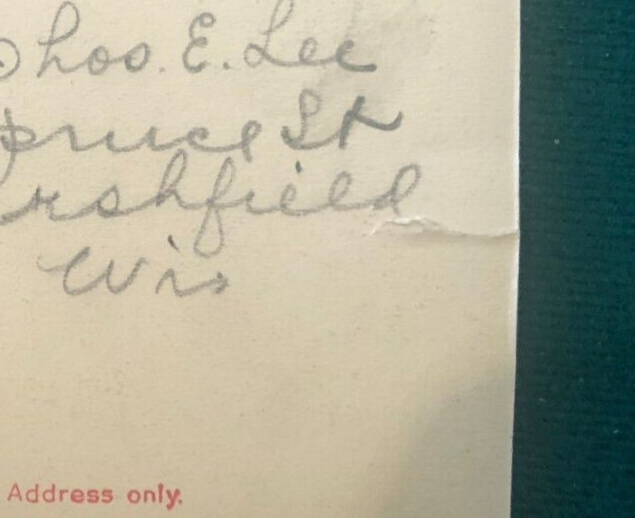 Thos. E. Lee
Spruce St
Marshfield
Wis
Address only.